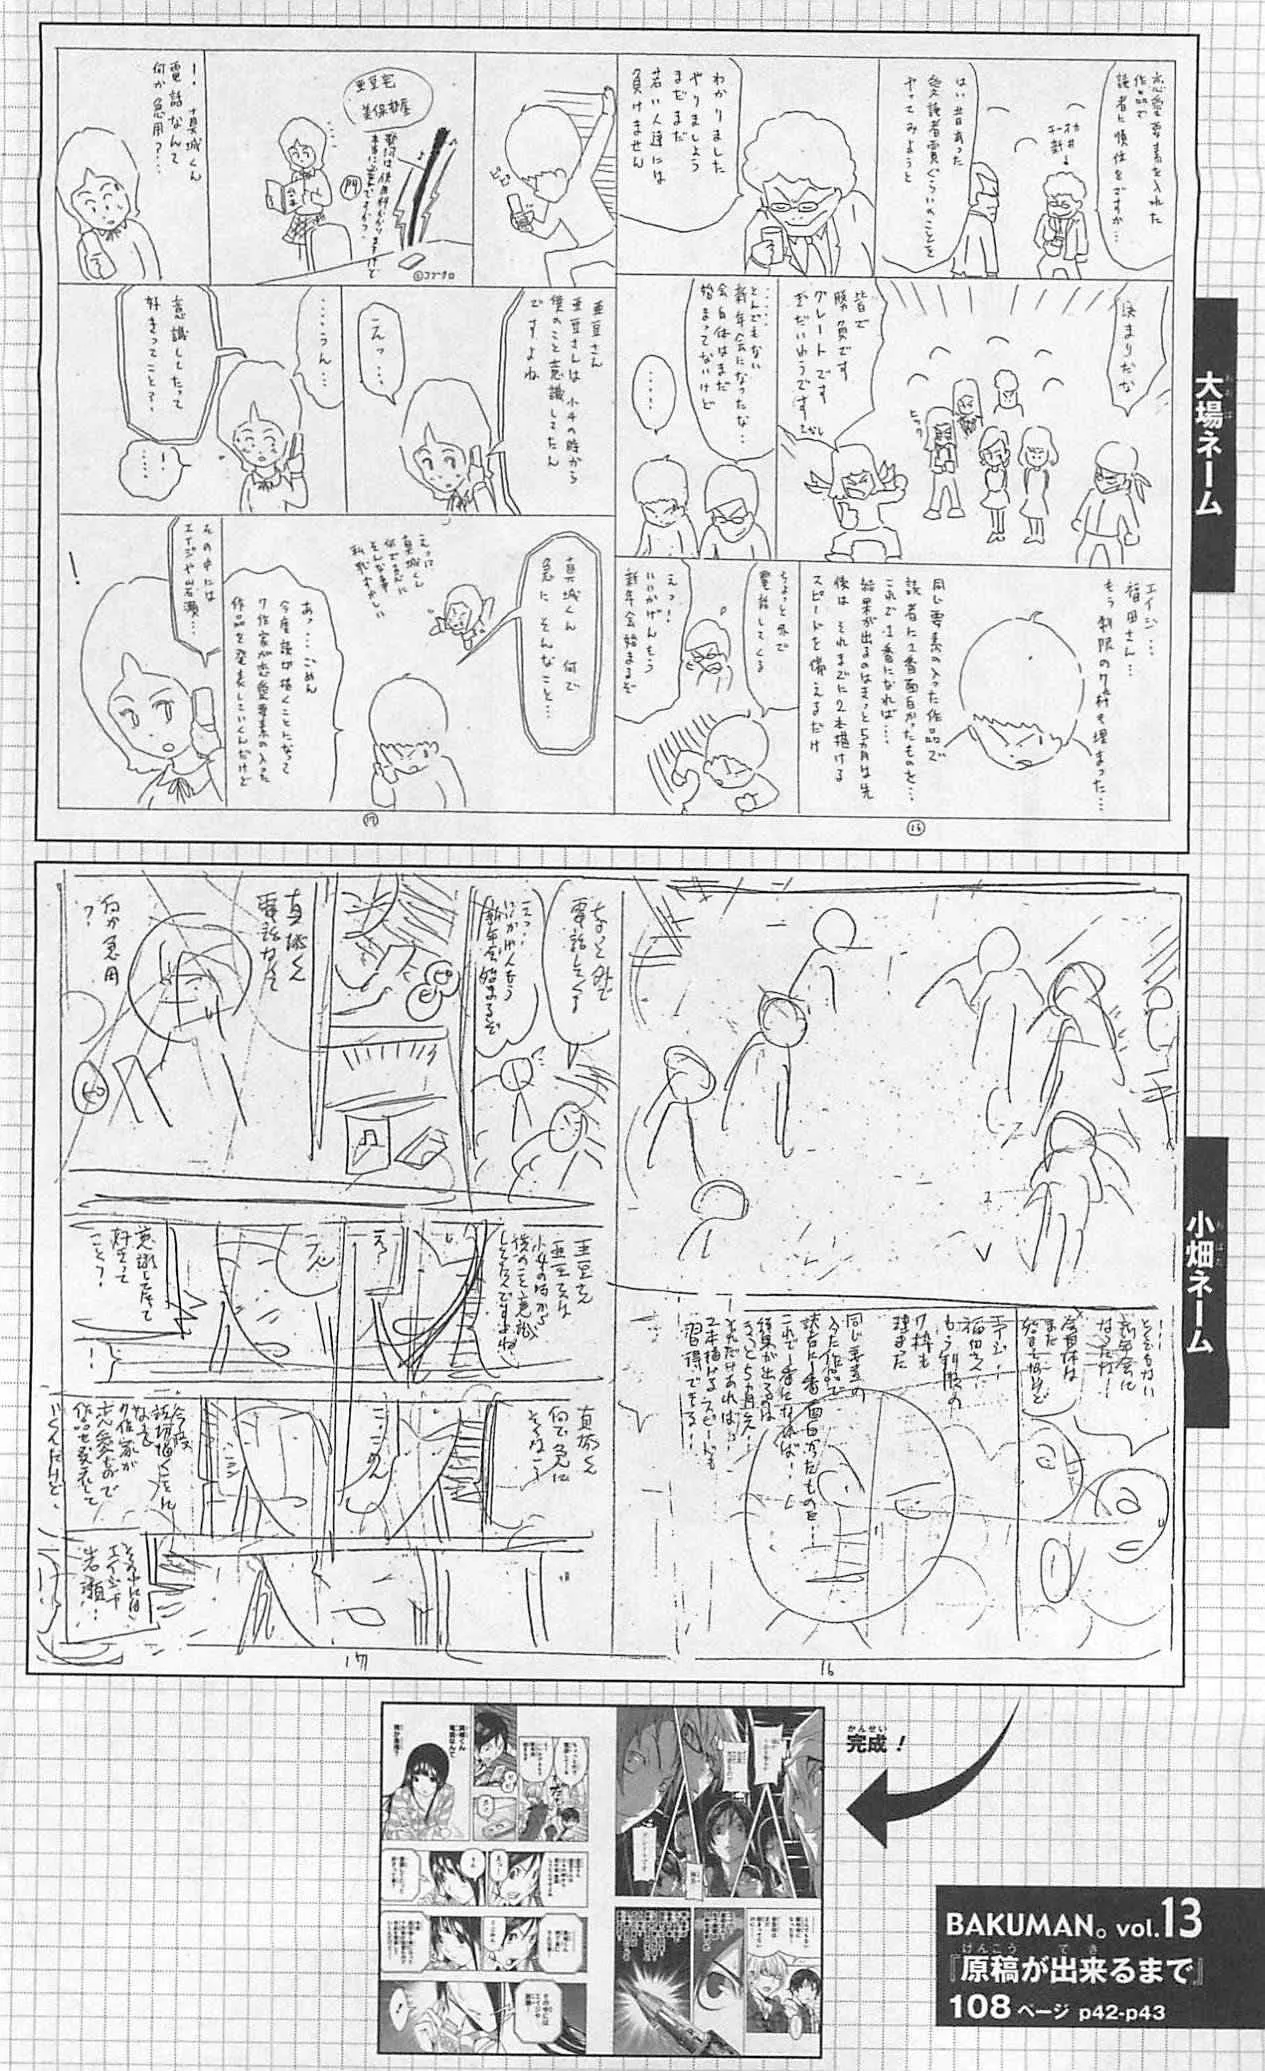 恋愛要素を入れた
作品で
読者に順位をですか…
はい昔あった
愛読者賞ぐらいのことを
やってみようと
わかりました
やりましょう
まだまだ
若い人達には
負けません
決まりだな
皆で
勝負です
グレートです
……
とんでもない
新年会になったな…
会自体はまだ
始まってないけど
……
エイジ…
福田さん…
もう制限の7枠も埋まった…
同じ要素の入った作品で
読者に1番面白かったものを…
これで1番になれば…
結果が出るのはきっと5カ月は先
後はそれまでに2本描ける
スピードを備えるだけ
ちょっと外で
電話してくる
えっ!
いいかげんもう
新年会始まるぞ
16
亜豆宅
美保部屋
!真城くん
電話なんて
何か急用?…
亜豆さん
亜豆さんは小4の時から
僕のこと意識してたん
ですよね
えっ…
……うん…
意識したって
好きってこと?
!
……
真城くん何で
急にそんなこと…
えっ!?
真城くん
何で急に
そんな事
あっ…ごめん
今度読切描くことになって
7作家が恋愛要素の入った
作品を発表していくんだけど
その中には
エイジや岩瀬…
!
17
大場ネーム
おおば
とんでもない
新年会に
なったな!
会自体は
まだ
始まってないけど
エイジ!
福田さん!
もう制限の
7枠も
埋まった
同じ要素の
入った作品で
読者に1番面白かったものを!
これで1番になれば!
結果が出るのは
きっと5カ月先!
それだけあれば!
2本描けるスピードも
習得できる!
16
ちょっと外で
電話してくる
えっ!
いいかげんもう
新年会始まるぞ
真城くん
電話なんて
何か急用
?
亜豆さん
亜豆さんは
小4の時から
僕のこと意識
してたんですよね
えっ
うん
意識してたって
好きって
こと?
!
真城くん
何で急に
そんなこと
ごめん
今度
読切描くことに
なって
7作家が
恋愛もので
作品を発表して
いくんだけど、
その中には
エイジや
岩瀬!
17
小畑ネーム
おばた
かんせい
完成!
真城くん
電話なんて
何か急用?
BAKUMAN。vol.13
げんこう で き
『原稿が出来るまで』
108ページ p42-p43